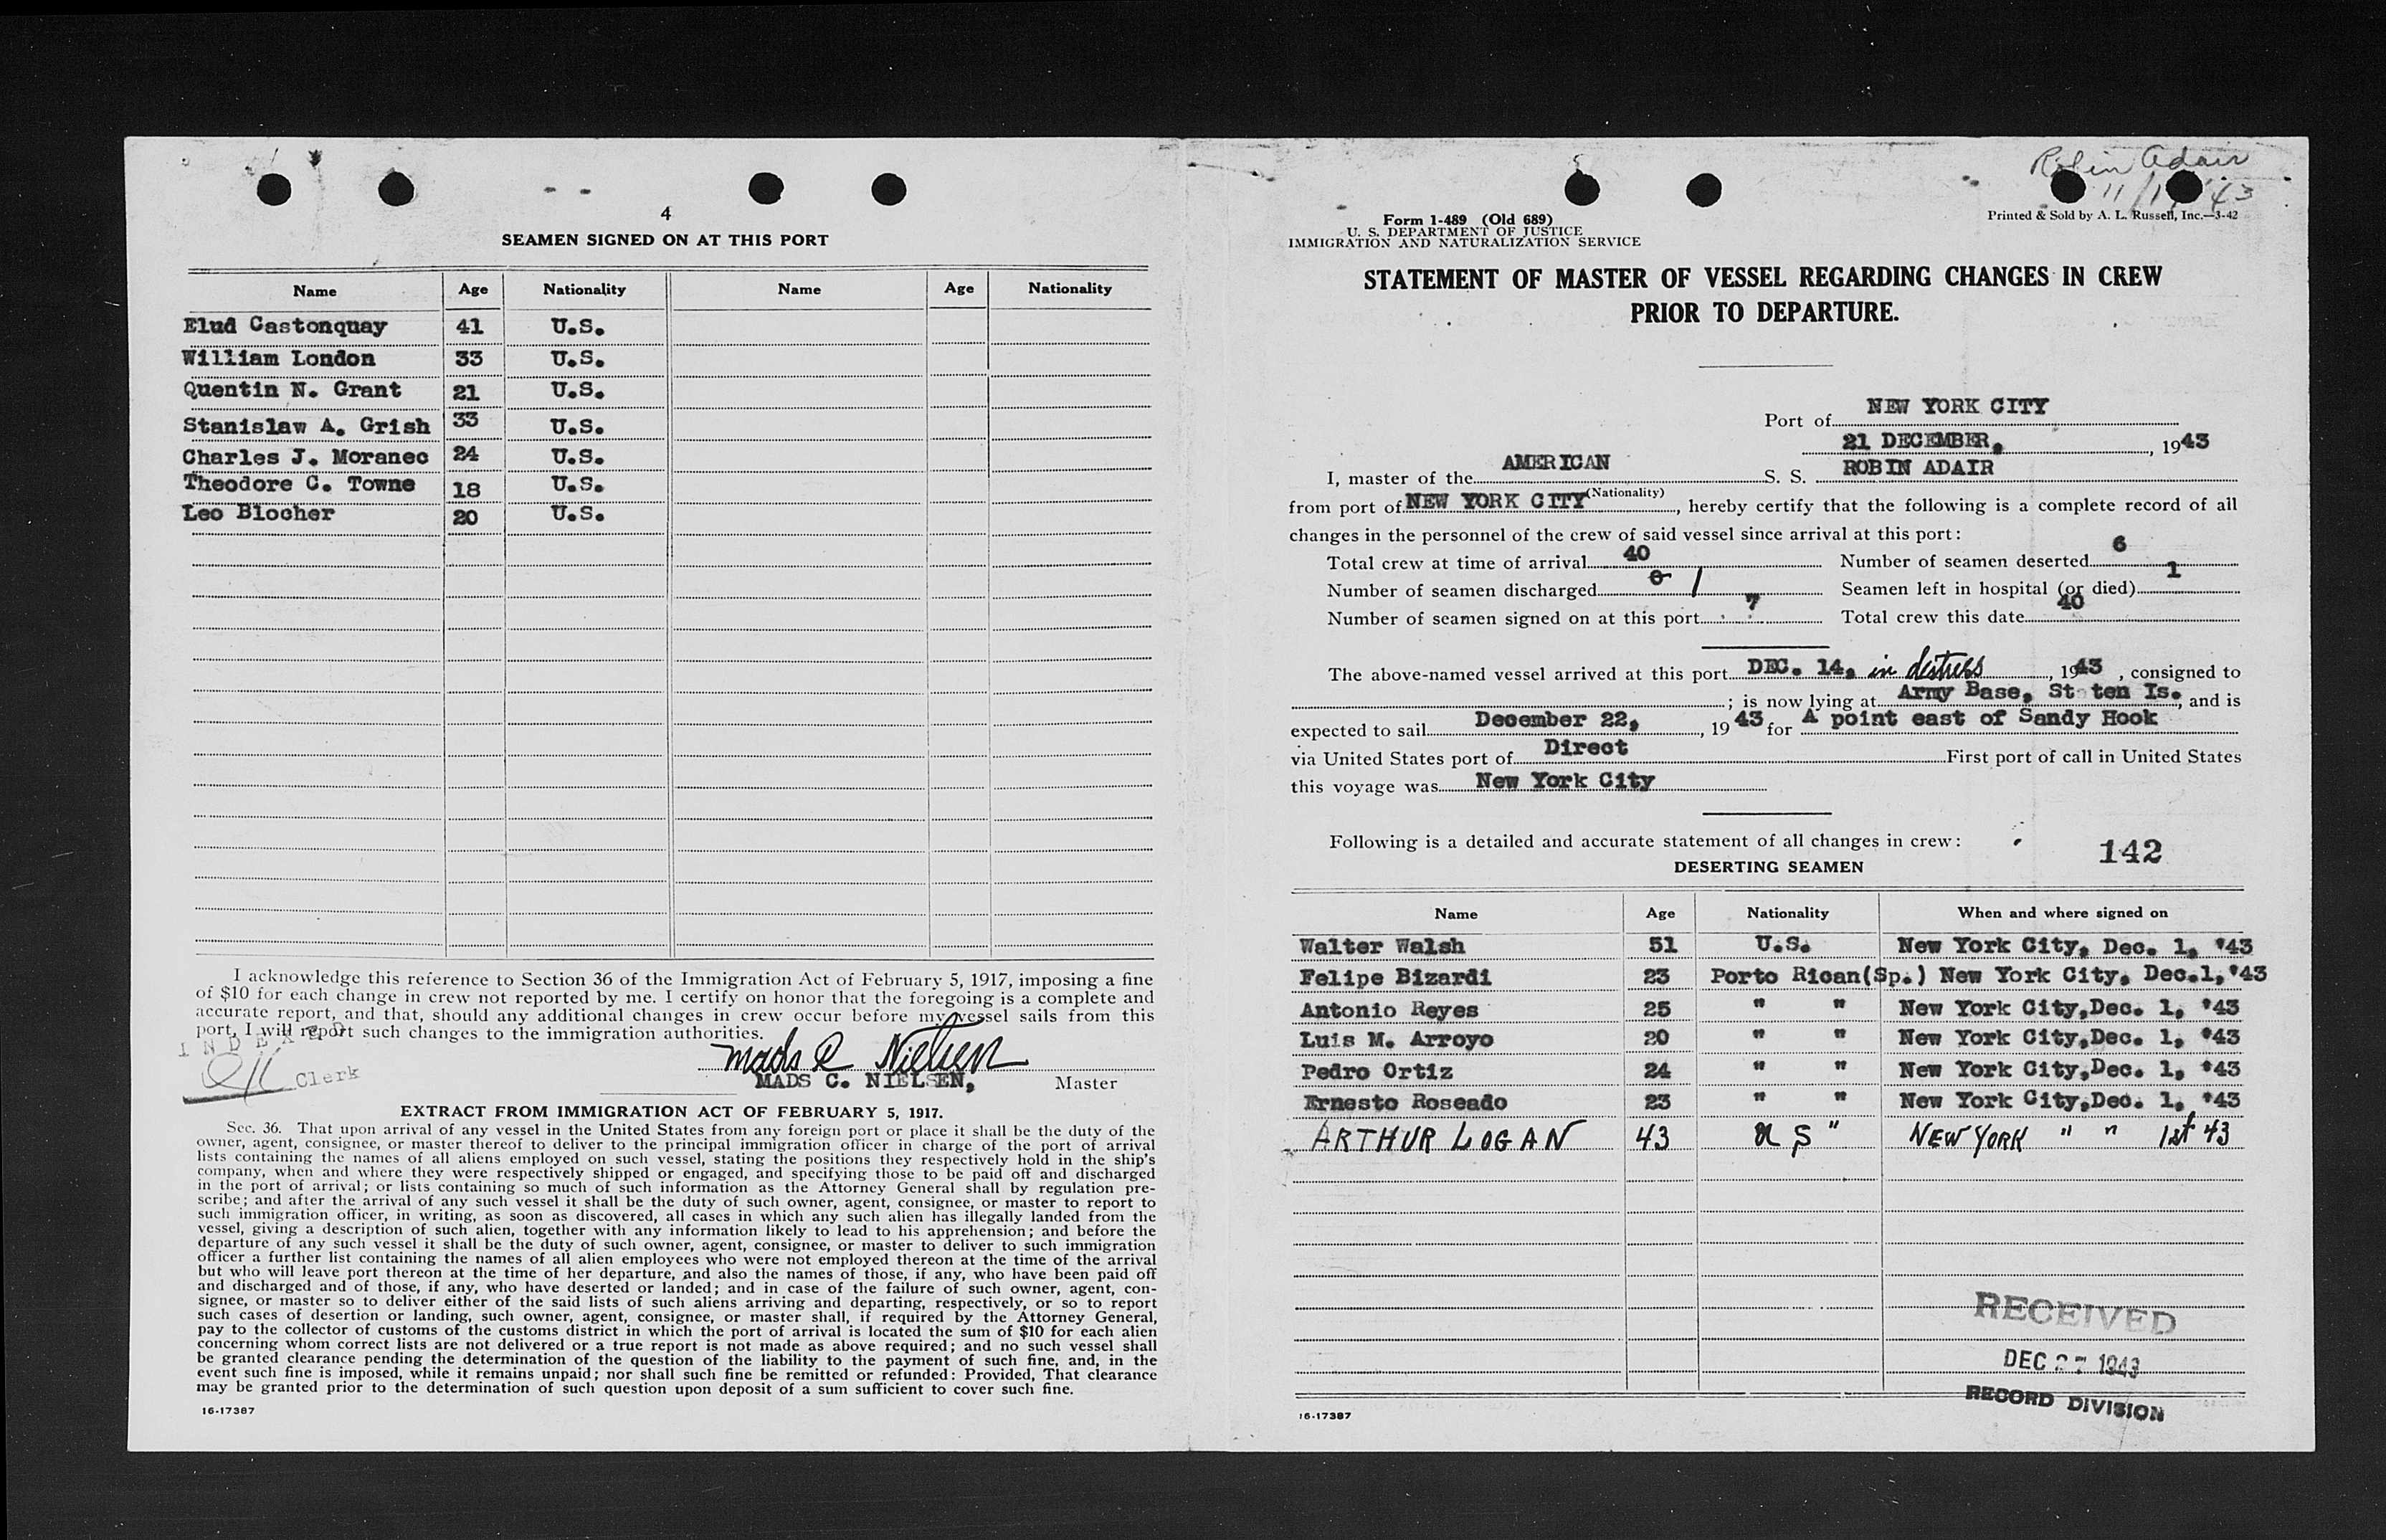 4
SEAMEN SIGNED ON AT THIS PORT
Name Age Nationality Name Age Nationality
Elud Castonquay 41 U.S.
William London 33 U.S.
Quentin N. Grant 21 U.S.
Stanislaw A. Grish 33 U.S.
Charles J. Moranec 24 U.S.
Theodore C. Towne 18 U.S.
Leo Blocher 20 U.S.
I acknowledge this reference to Section 36 of the Immigration Act of February 5, 1917, imposing a fine
of $10 for each change in crew not reported by me. I certify on honor that the foregoing is a complete and
accurate report, and that, should any additional changes in crew occur before my vessel sails from this
port, I will report such changes to the immigration authorities.
INDEXED
Clerk
Mads C Nielsen
MADS C. NIELSEN, Master
EXTRACT FROM IMMIGRATION ACT OF FEBRUARY 5, 1917.
Sec. 36. That upon arrival of any vessel in the United States from any foreign port or place it shall be the duty of the
owner, agent, consignee, or master thereof to deliver to the principal immigration officer in charge of the port of arrival
lists containing the names of all aliens employed on such vessel, stating the positions they respectively hold in the ship's
company, when and where they were respectively shipped or engaged, and specifying those to be paid off and discharged
in the port of arrival; or lists containing so much of such information as the Attorney General shall by regulation pre-
scribe; and after the arrival of any such vessel it shall be the duty of such owner, agent, consignee, or master to report to
such immigration officer, in writing, as soon as discovered, all cases in which any such alien has illegally landed from the
vessel, giving a description of such alien, together with any information likely to lead to his apprehension; and before the
departure of any such vessel it shall be the duty of such owner, agent, consignee, or master to deliver to such immigration
officer a further list containing the names of all alien employees who were not employed thereon at the time of the arrival
but who will leave port thereon at the time of her departure, and also the names of those, if any, who have been paid off
and discharged and of those, if any, who have deserted or landed; and in case of the failure of such owner, agent, con-
signee, or master so to deliver either of the said lists of such aliens arriving and departing, respectively, or so to report
such cases of desertion or landing, such owner, agent, consignee, or master shall, if required by the Attorney General,
pay to the collector of customs of the customs district in which the port of arrival is located the sum of $10 for each alien
concerning whom correct lists are not delivered or a true report is not made as above required; and no such vessel shall
be granted clearance pending the determination of the question of the liability to the payment of such fine, and, in the
event such fine is imposed, while it remains unpaid; nor shall such fine be remitted or refunded: Provided, That clearance
may be granted prior to the determination of such question upon deposit of a sum sufficient to cover such fine.
16-17387
Robin Adair
Form 1-489 (Old 689)
U. S. DEPARTMENT OF JUSTICE
IMMIGRATION AND NATURALIZATION SERVICE
Printed & Sold by A. L. Russell, Inc.—3-42
STATEMENT OF MASTER OF VESSEL REGARDING CHANGES IN CREW
PRIOR TO DEPARTURE.
Port of NEW YORK CITY
21 DECEMBER, , 1943
I, master of the AMERICAN S. S. ROBIN ADAIR
(Nationality)
from port of NEW YORK CITY, hereby certify that the following is a complete record of all
changes in the personnel of the crew of said vessel since arrival at this port:
Total crew at time of arrival 40 Number of seamen deserted 6
Number of seamen discharged 0 1 Seamen left in hospital (or died) 1
Number of seamen signed on at this port 7 Total crew this date 40
The above-named vessel arrived at this port DEC. 14, in distress, 1943, consigned to
; is now lying at Army Base, St ten Is., and is
expected to sail December 22, , 1943 for A point east of Sandy Hook
via United States port of Direct First port of call in United States
this voyage was New York City
Following is a detailed and accurate statement of all changes in crew:
142
DESERTING SEAMEN
Name Age Nationality When and where signed on
Walter Walsh 51 U.S. New York City, Dec. 1, '43
Felipe Bizardi 23 Porto Rican(Sp.) New York City, Dec.1,'43
Antonio Reyes 25 " " New York City,Dec. 1, '43
Luis M. Arroyo 20 " " New York City,Dec. 1, '43
Pedro Ortiz 24 " " New York City,Dec. 1, '43
Ernesto Roseado 23 " " New York City,Dec. 1, '43
ARTHUR LOGAN 43 U S " NEW YORK " " 1st 43
RECEIVED
DEC 27 1943
RECORD DIVISION
16-17387